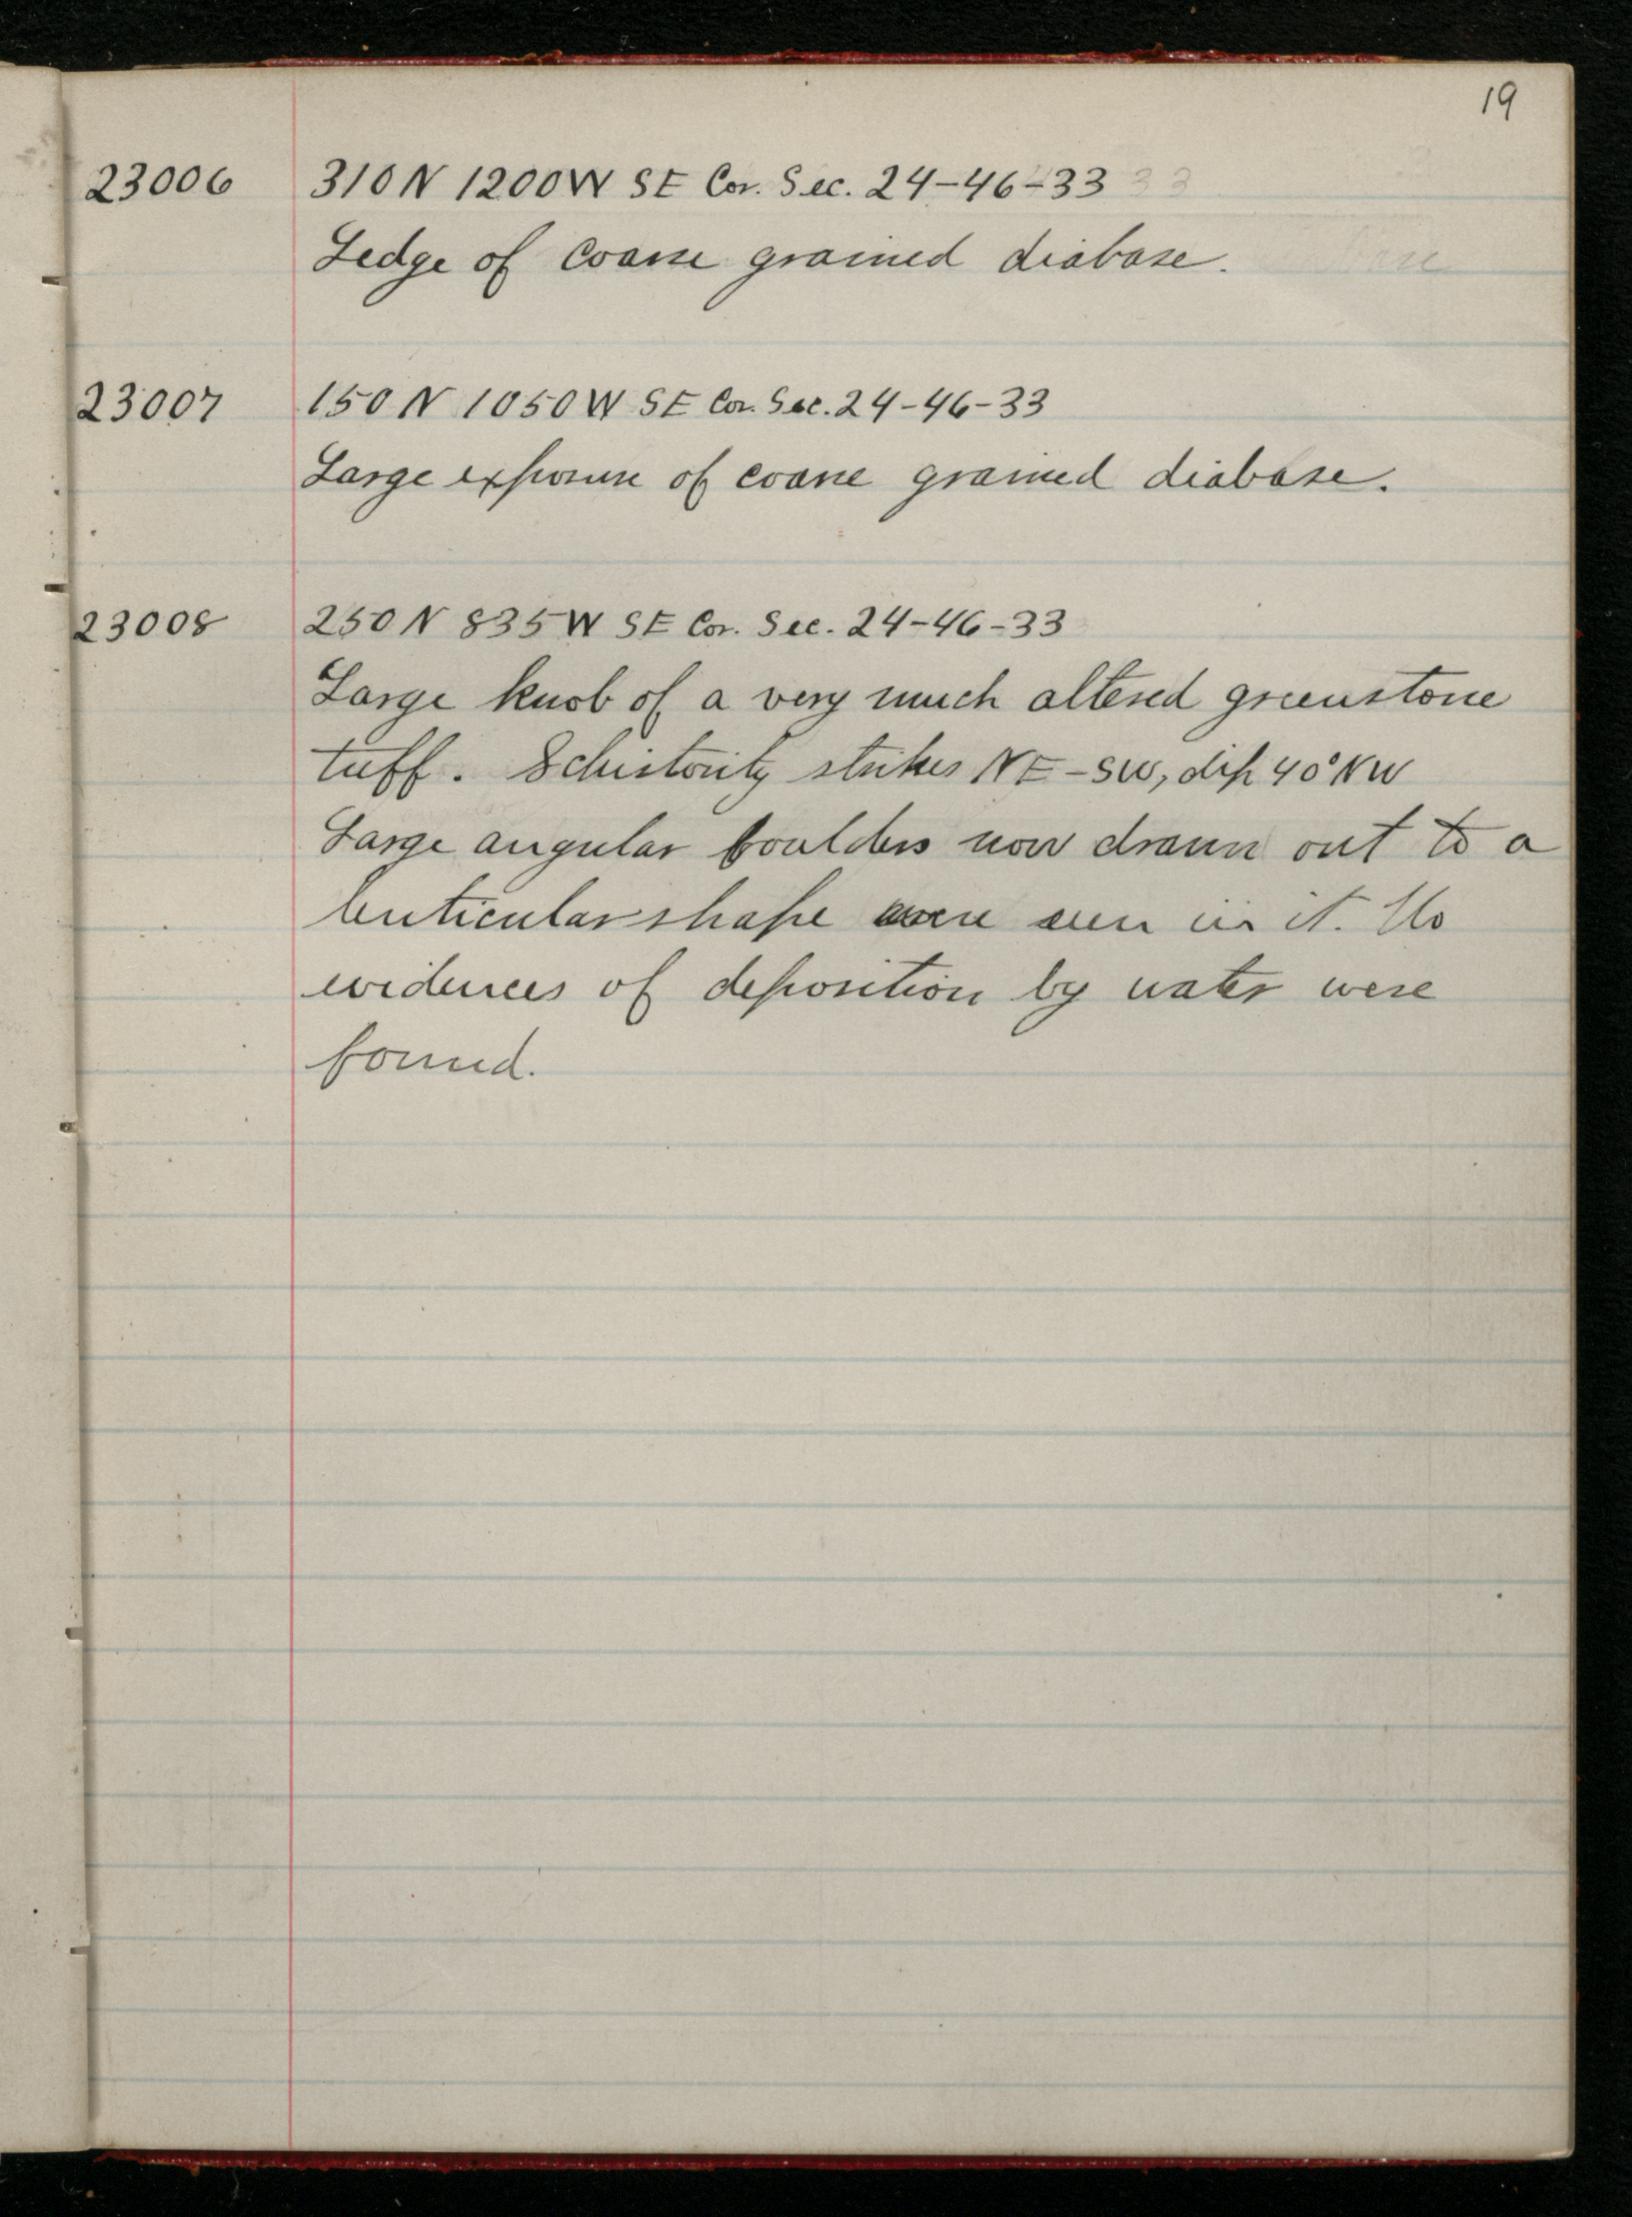 19
23006 310 N 1200 W SE Cor. Sec. 24-46-33
Ledge of coarse grained diabase.
23007 150 N 1050 W SE Cor. Sec. 24-46-33
Large exposure of coarse grained diabase.
23008 250 N 835 W SE Cor. Sec. 24-46-33
Large knob of a very much altered greenstone
tuff. Schistosity strikes NE-SW, dip 40° NW
Large angular boulders now drawn out to a
lenticular shape were seen in it. No
evidences of deposition by water were
found.